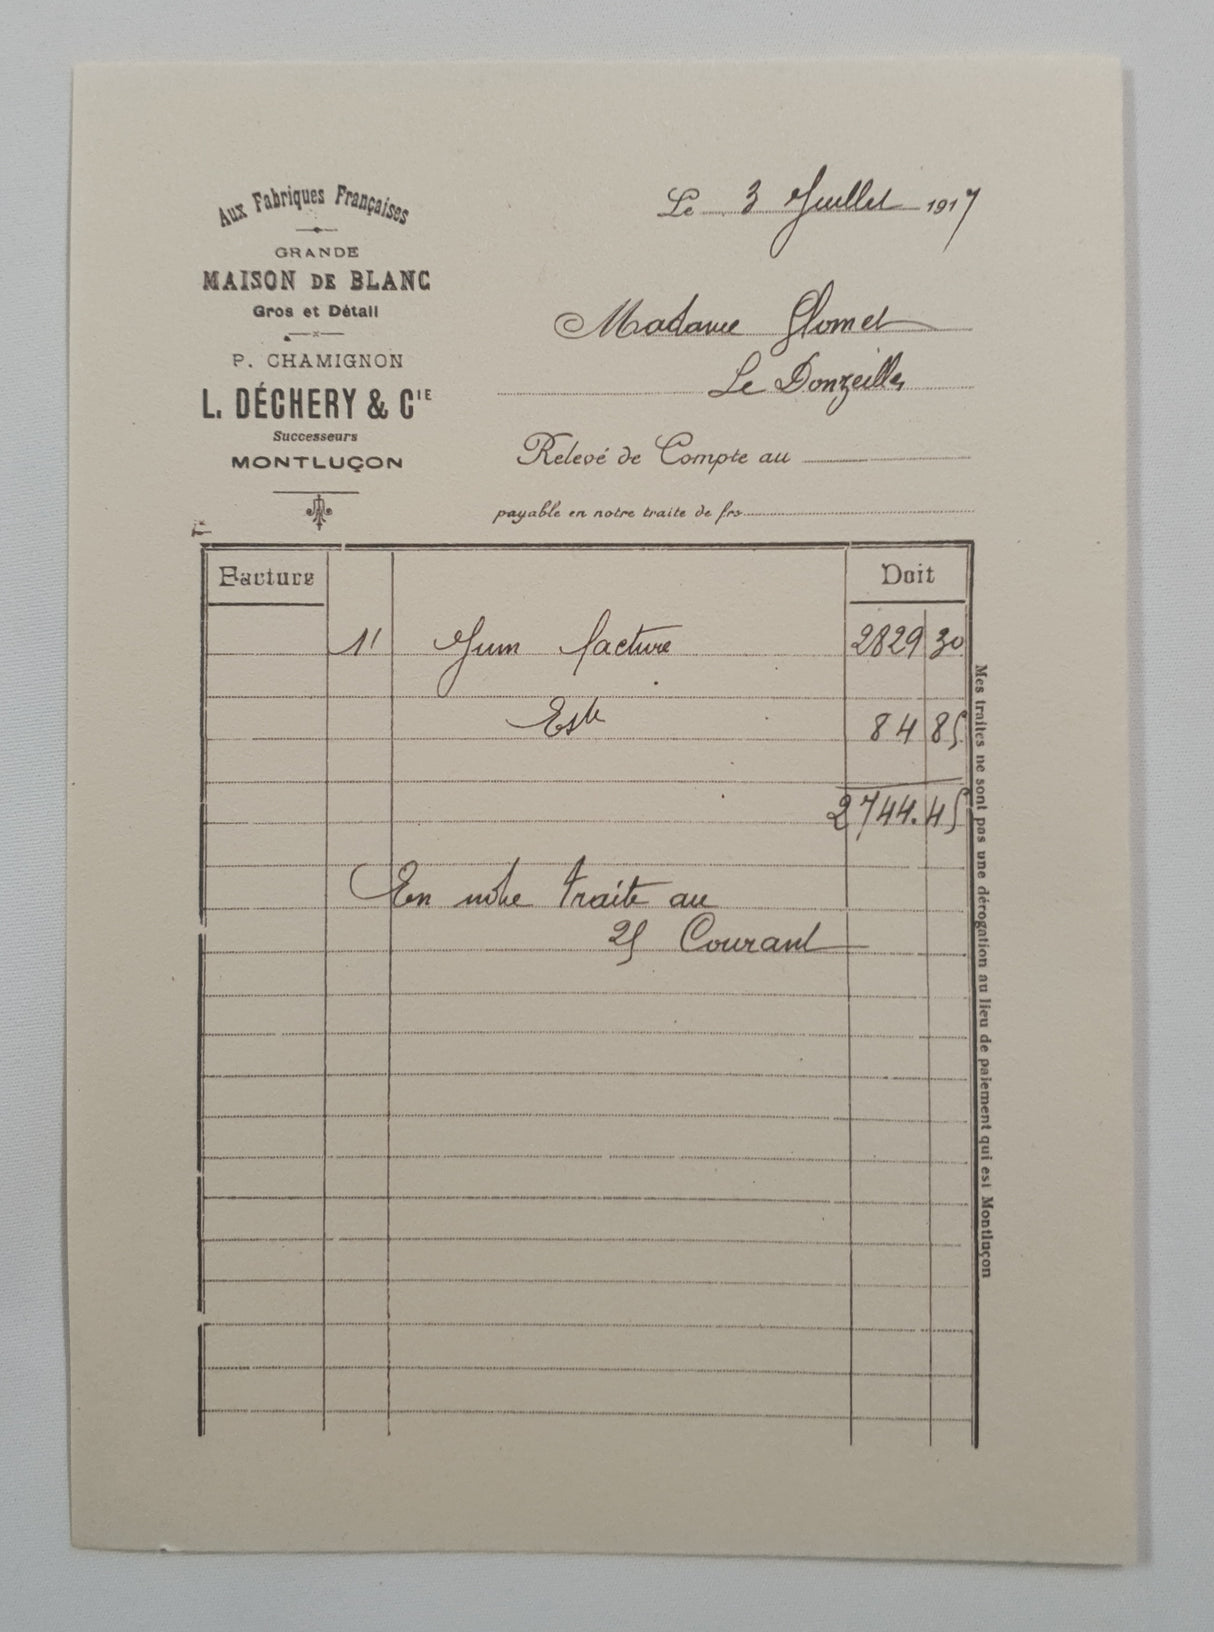 Aux Fabriques Françaises
GRANDE
MAISON DE BLANC
Gros et Détail
P. CHAMIGNON
L. DÉCHERY & CIE
Successeurs
MONTLUÇON
Le 3 Juillet 1917
Madame Glomet
Le Donzeilles
Relevé de Compte au
payable en notre traite de frs
Facture Doit
Juin facture 2829 30
84 85
2744.45
En notre traite au
25 Courant
Mes traites ne sont pas une dérogation au lieu de paiement qui est Montluçon